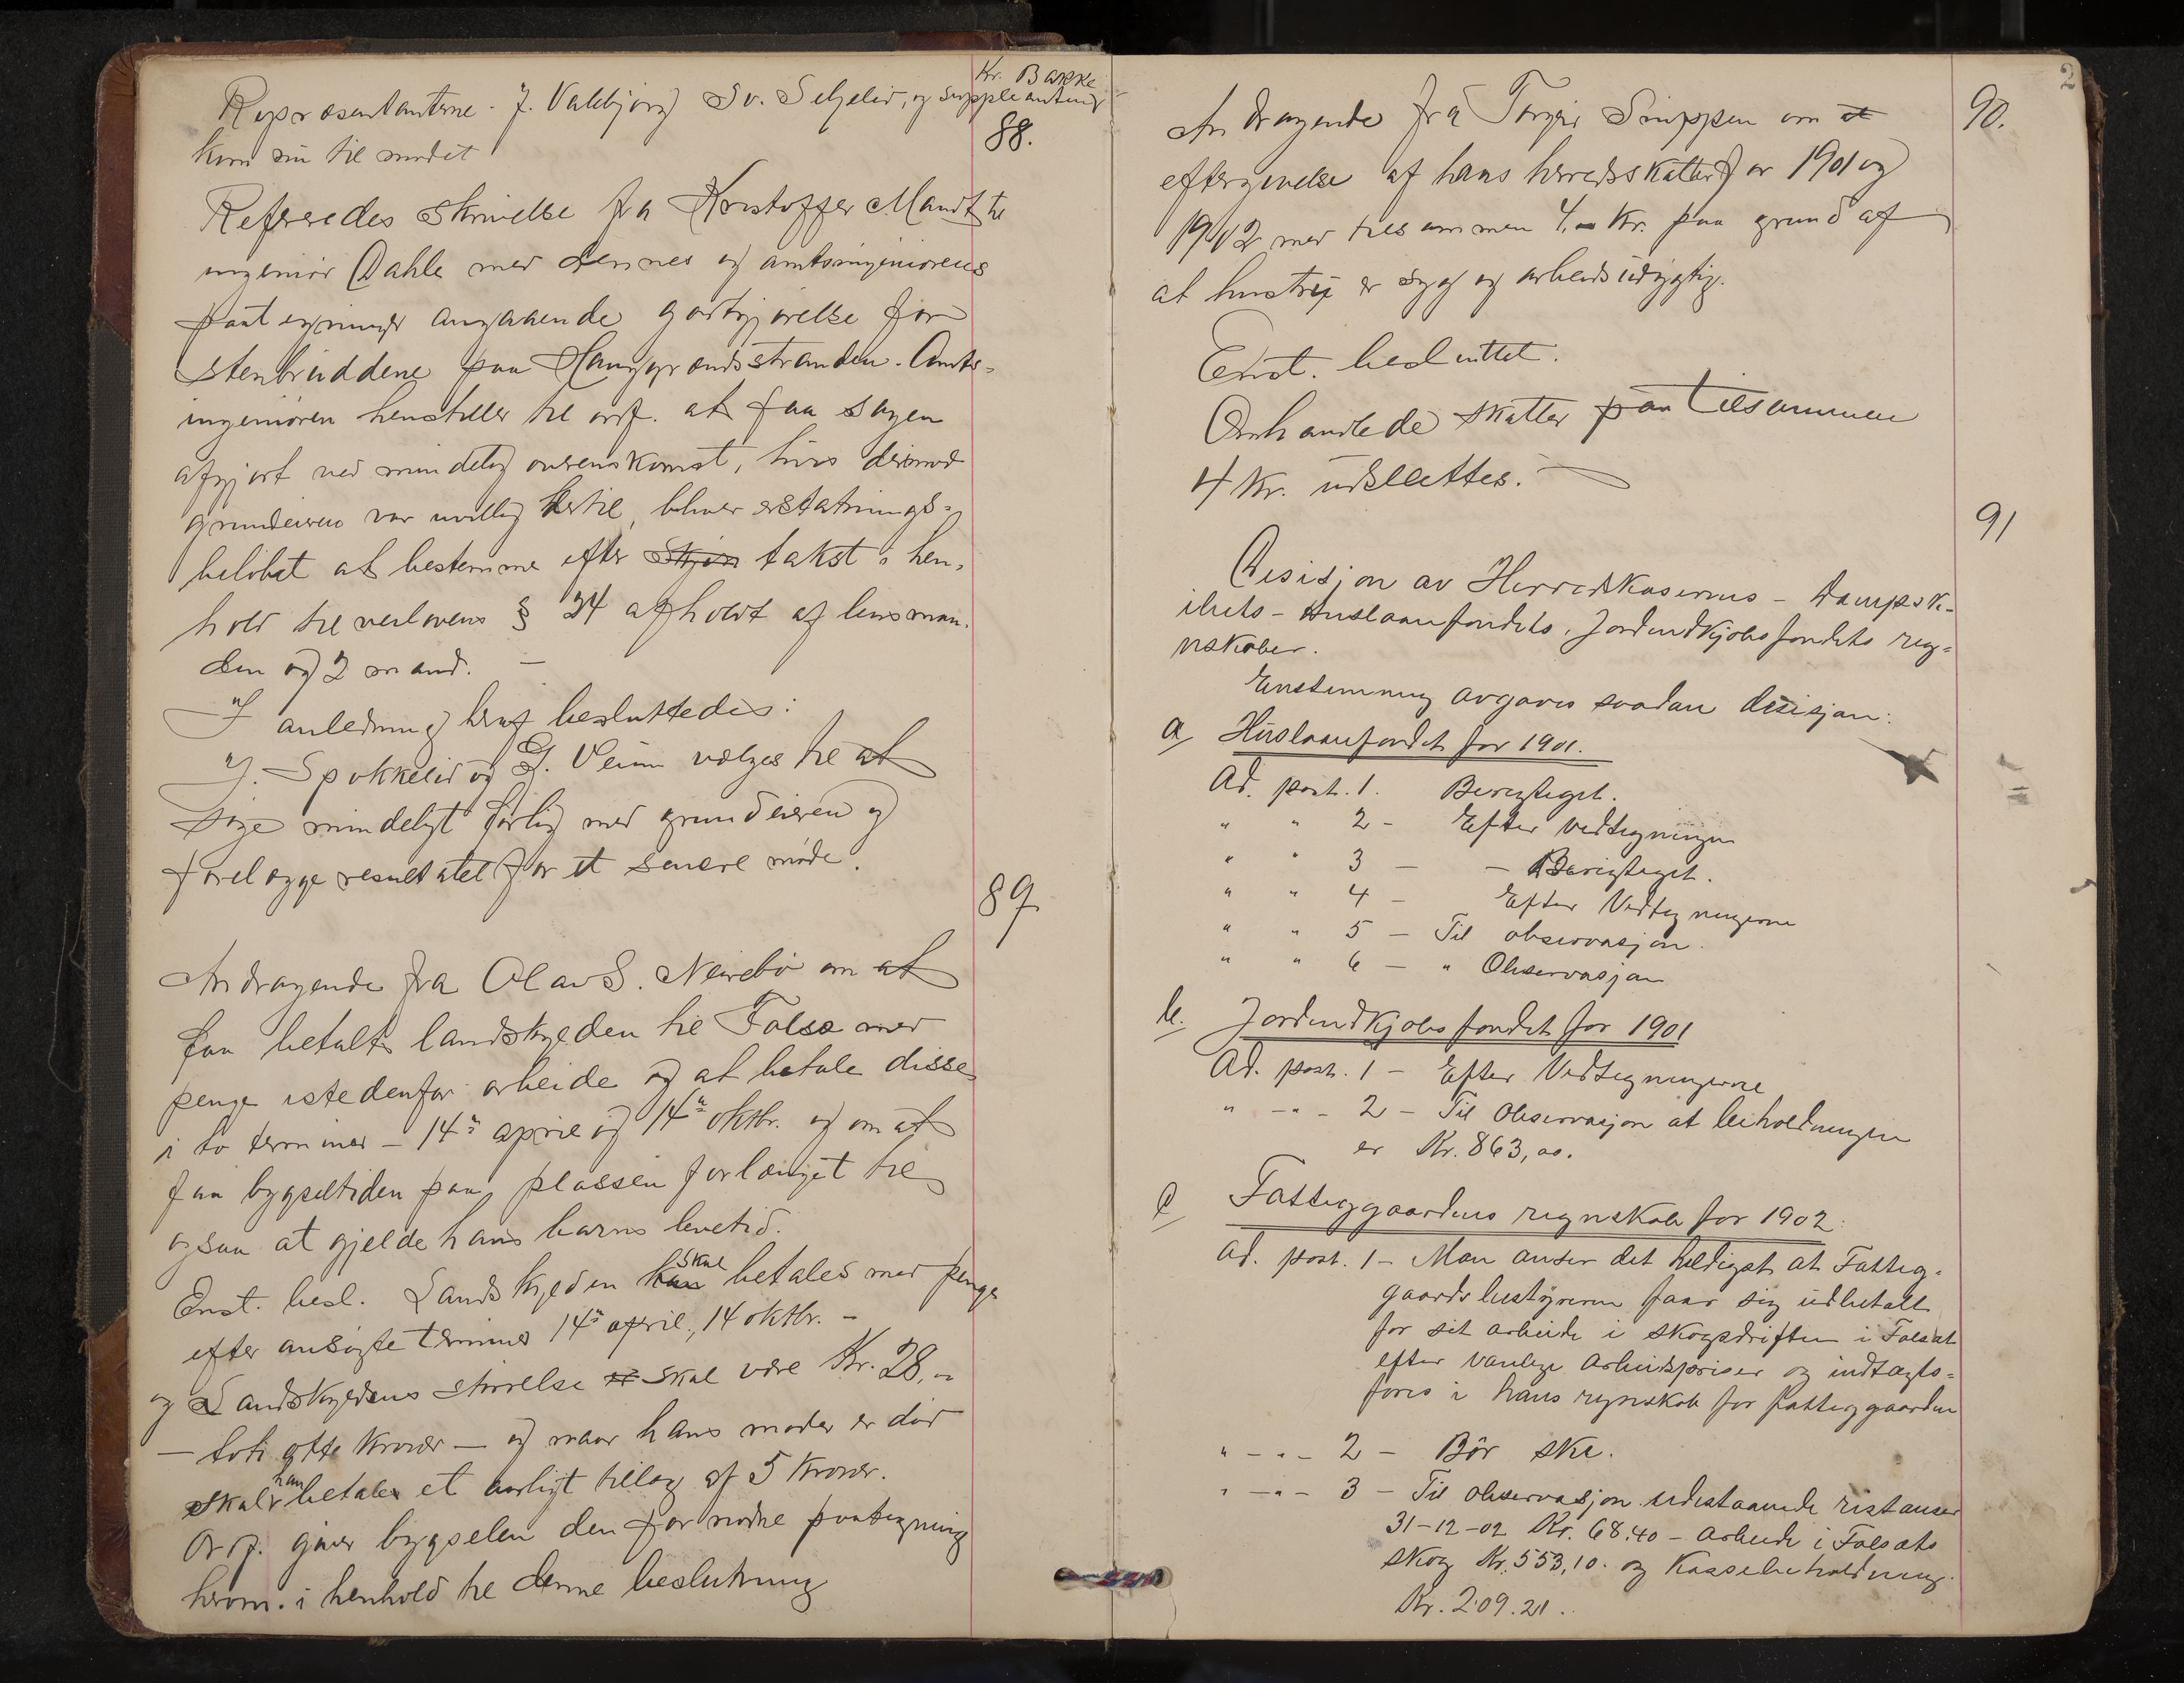 Kr. Bakke
Repræsentanterne J. Valebjørg Sv. Seljelid, og suppleanterne
kom nu til mødet
88.
Refereredes skrivelse fra Kristoffer Mandt til
ingeniør Dahle med dennes og amtsingeniørens
paategninger angaaende godtgjørelse for
stenbruddene paa Hauggrændsstranden. Amts-
ingeniøren henstiller til ordf. at faa sagen
afgjort ved mindelig overenskomst, hvis derimod
grundeieren var uvillig hertil, bliver erstatnings-
beløbet at bestemme efter skjøn takst i hen-
hold til veilovens § 34 afholdt af lensman-
den og 2 mand. —
I anledning heraf besluttedes:
J. Spokkelid og G. Veum vælges til at
søge mindeligt forlig med grundeieren og
forelægge resultatet for et senere møde.
89.
Andragende fra Olav S. Neirebø om at
faa betalt landskylden til Folsæ med
penge istedenfor arbeide og at betale disse
i to terminer – 14de april og 14de oktbr. og om at
faa bygseltiden paa plassen forlænget til
ogsaa at gjelde hans barns levetid.
Enst. besl. Landskylden kan skal betales med penge
efter ansøgte terminer 14de april, 14 oktbr. –
og Landskyldens størrelse er skal være Kr. 28,00
— toti otte kroner — og naar hans moder er død
skal han betale et aarligt tillæg af 5 kroner.
Ordf. giver bygselen den fornødne paategning
herom. i henhold til denne beslutning
2
90.
Andragende frå Torgeir Snippen om et
eftergivelse af hans herredsskatter for 1901 og
1902 med tilsammen 4.– Kr. paa grund af
at hustru er syg og arbeidsudygtig.
Enst. besluttet.
Omhandlede skatter paa tilsammen
4 Kr. udslettes.
91
Desisjon av Herredskasernes – Dampsk-
ibets – Huslaanfondets, Jordindkjøbsfondets reg-
nskaber.
Enstemmig avgaves saadan desisjon:
a/ Huslaanfondet for 1901.
Ad. post. 1. Berigtiget.
" " 2 – Efter Vedtegningen
" " 3 — — Berigtiget.
" " 4 – Efter Vedtegningerne
" " 5 – Til observasjon.
" " 6 – " Observasjon
b. Jordindkjøbsfondet for 1901
Ad. post. 1 – Efter Vedtegningerne
" – " – 2 – Til Observasjon at beholdningen
er Kr. 863,00.
c/ Fatteggaardens regnskab for 1902:
Ad. post. 1 – Man anser det heldigst at Fatteg-
gaardsbestyreren faar sig udbetalt
for sit arbeide i skogsdriften i Folsæt
efter vanlige arbeidspriser og indtægts-
føres i hans regnskab for fatteggaarden
" – " – 2 – Bør ske.
" – " – 3 – Til observasjon udestaaende ristanser
31-12-02 Kr. 68.40 – arbeide i Folsæts
skog Kr. 553,10. og Kassebeholdning
Kr. 209.21.